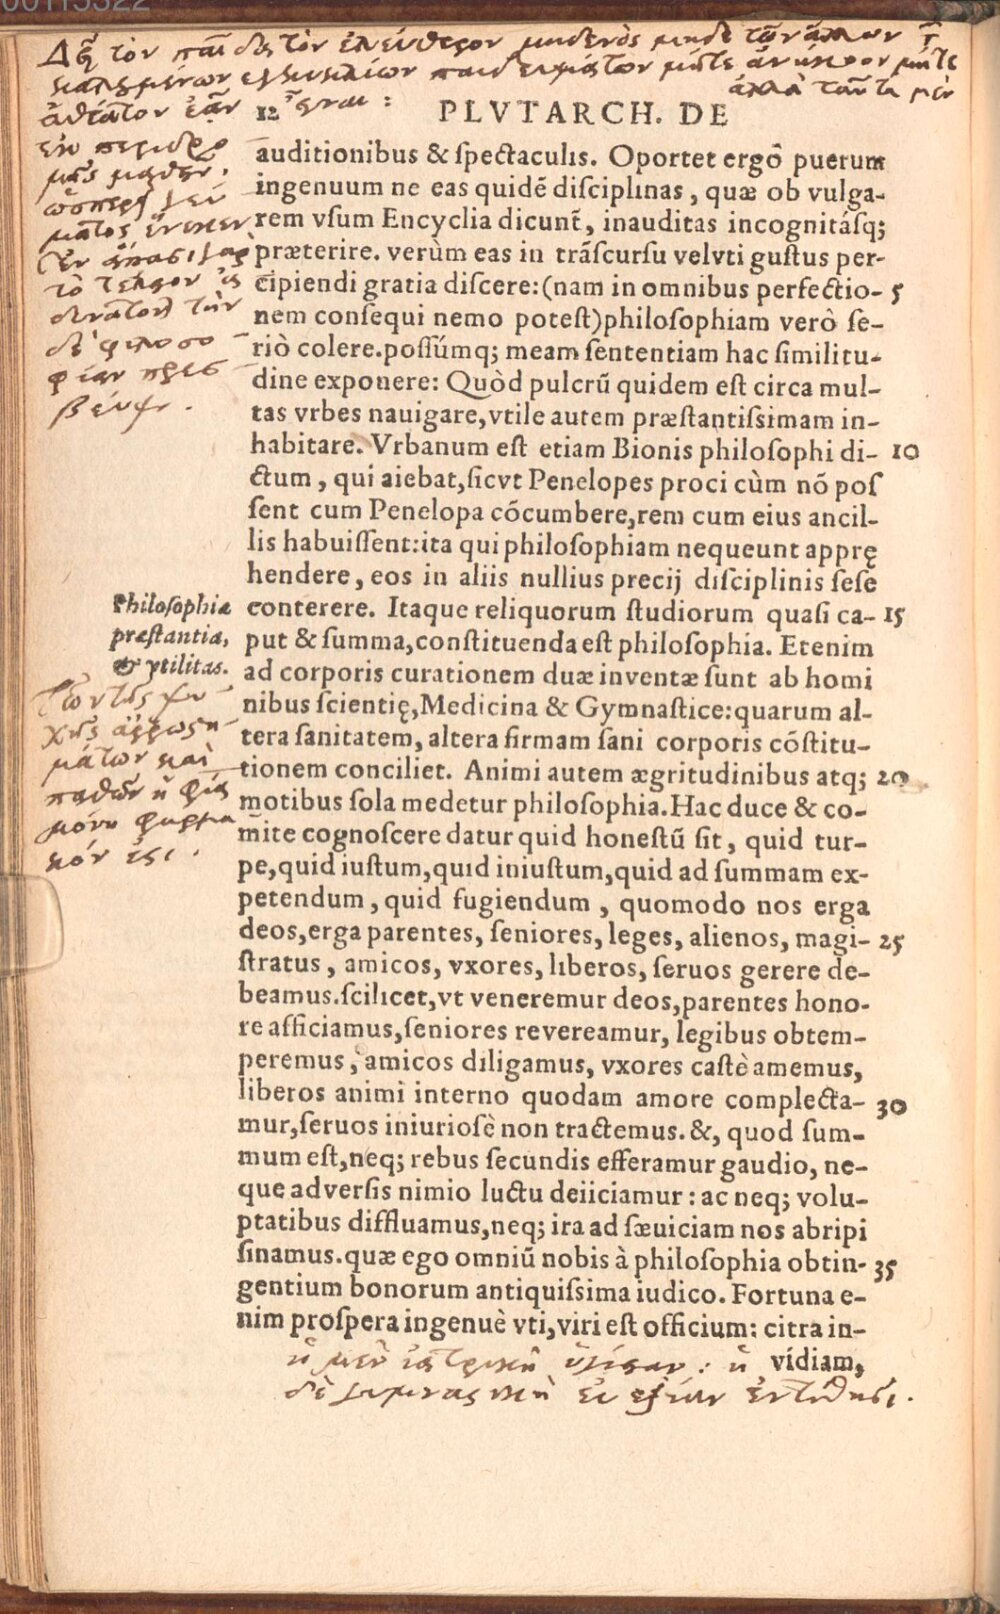 00115322
Δεῖ τὸν παῖδα τὸν ἐλεύθερον μηδενὸς μηδὲ τῶν ἄλλων τ
καλουμένων ἐγκυκλίων παιδευμάτων μήτε ἀνήκοον μήτε
ἀθέατον ἐᾶν εἶναι : ἀλλὰ ταῦτα μὲν
12 PLVTARCH. DE
ἐκ περιδρο
μῆς μαθεῖν.
ὡσπερεὶ γεύ
ματος ἕνεκεν
ἐν ἅπασι γὰρ
τὸ τέλειον
ἀδύνατον τὴν
δὲ φιλοσο
φίαν πρεσ
βεύειν.
auditionibus & spectaculis. Oportet ergô puerum
ingenuum ne eas quidẽ disciplinas, quæ ob vulga-
rem vsum Encyclia dicunt̃, inauditas incognitásq;
præterire. verùm eas in trãscursu velvti gustus per-
cipiendi gratia discere:(nam in omnibus perfectio- 5
nem consequi nemo potest)philosophiam verò se-
riò colere.possúmq; meam sententiam hac similitu-
dine exponere: Quòd pulcrũ quidem est circa mul-
tas vrbes nauigare,vtile autem præstantissimam in-
habitare. Vrbanum est etiam Bionis philosophi di- 10
ctum, qui aiebat,sicvt Penelopes proci cùm nõ pos
sent cum Penelopa cõcumbere,rem cum eius ancil-
lis habuissent:ita qui philosophiam nequeunt apprę
hendere, eos in aliis nullius precij disciplinis sese
conterere. Itaque reliquorum studiorum quasi ca- 15
put & summa,constituenda est philosophia. Etenim
ad corporis curationem duæ inventæ sunt ab homi
nibus scientię,Medicina & Gymnastice:quarum al-
tera sanitatem, altera firmam sani corporis cõstitu-
tionem conciliet. Animi autem ægritudinibus atq; 20
motibus sola medetur philosophia.Hac duce & co-
mite cognoscere datur quid honestũ sit, quid tur-
pe,quid iustum,quid iniustum,quid ad summam ex-
petendum, quid fugiendum, quomodo nos erga
deos,erga parentes, seniores, leges, alienos, magi- 25
stratus, amicos, vxores, liberos, seruos gerere de-
beamus.scilicet,vt veneremur deos,parentes hono-
re afficiamus,seniores revereamur, legibus obtem-
peremus, amicos diligamus, vxores castè amemus,
liberos animi interno quodam amore complecta- 30
mur,seruos iniuriosè non tractemus. &, quod sum-
mum est,neq; rebus secundis efferamur gaudio, ne-
que adversis nimio luctu deiiciamur: ac neq; volu-
ptatibus diffluamus,neq; ira ad sæuiciam nos abripi
sinamus.quæ ego omniũ nobis à philosophia obtin- 35
gentium bonorum antiquissima iudico. Fortuna e-
nim prospera ingenuè vti,viri est officium: citra in-
vidiam,
Philosophiæ
præstantia,
& vtilitas.
τῶν τῆς ψυ
χῆς ἀρρωστη
μάτων καὶ
παθῶν ἡ φιλ
μόνη φάρμα
κόν ἐστι.
ἡ μὲν ἰατρικὴ ὑγίειαν : ἡ
δὲ γυμναστικὴ εὐεξίαν ἐντίθησι.